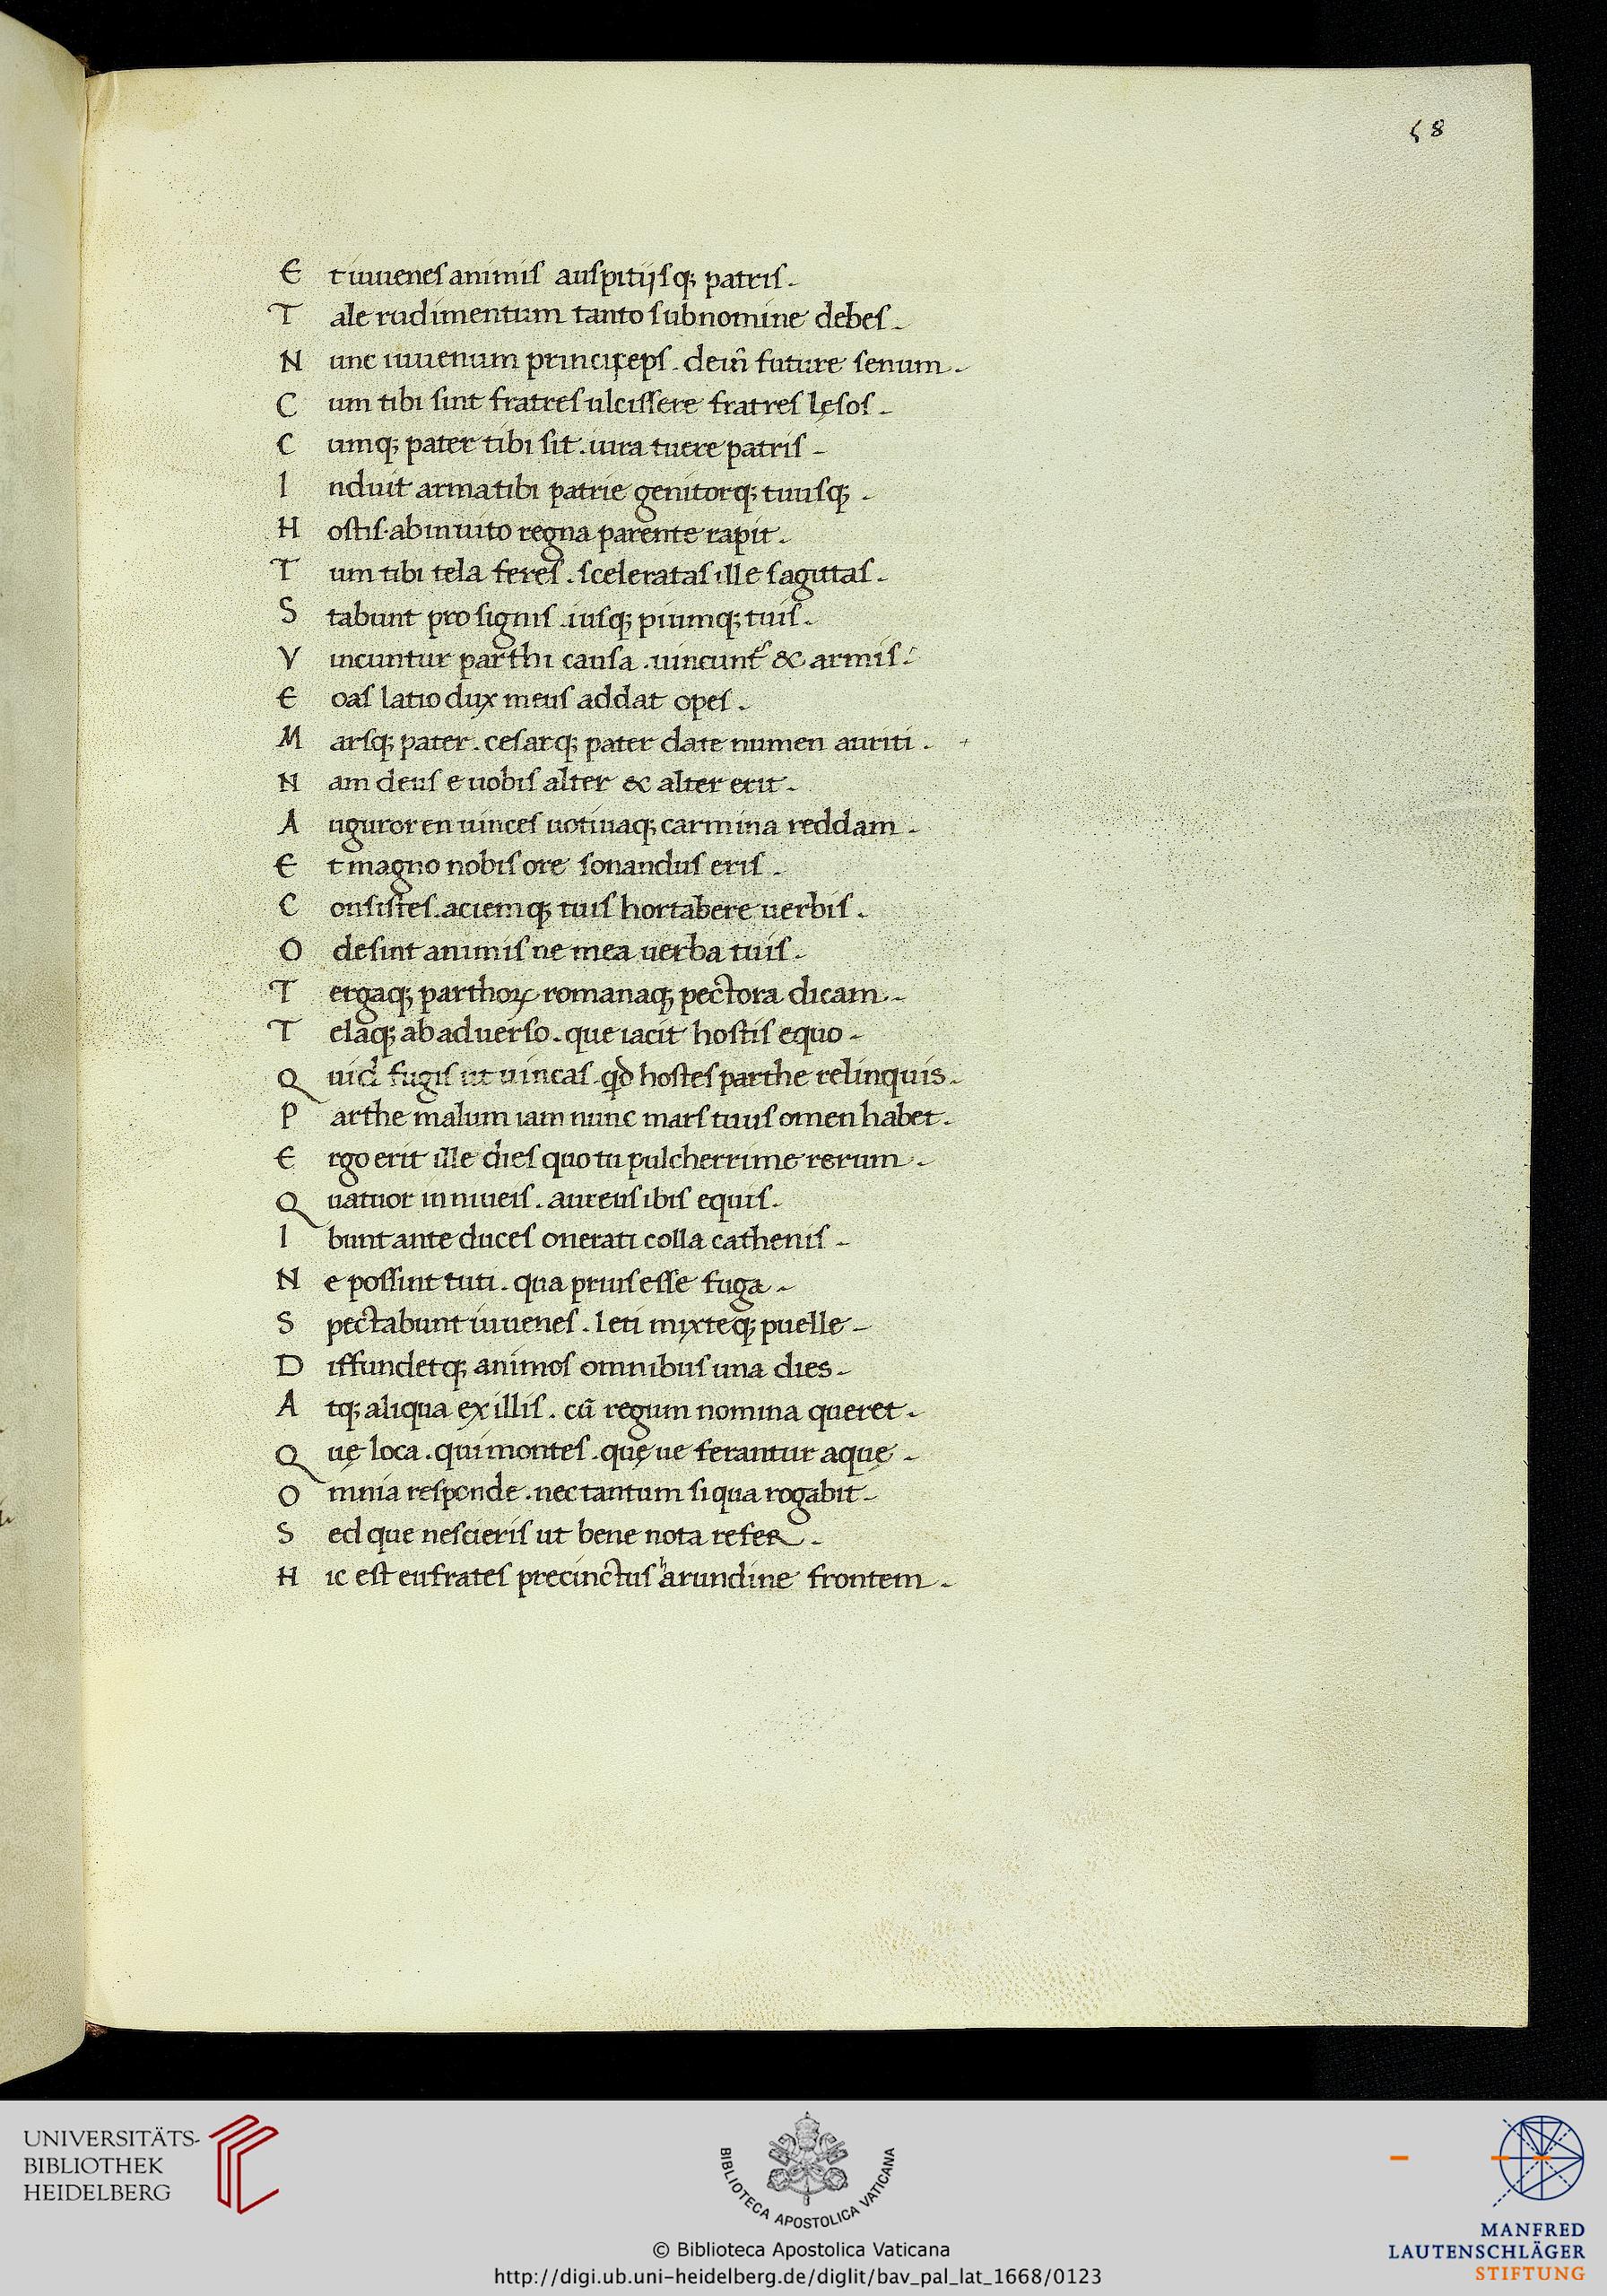 58
E t iuuenes animis auspitijsq; patris.
T ale rudimentum tanto sub nomine debes.
N unc iuuenum princeps. dein̄ future senum.
C um tibi sint fratres ulcissere fratres lęsos.
C umq; pater tibi sit. iura tuere patris.
I nduit arma tibi patrie genitorq; tuusq;.
H ostis. ab inuito regna parente rapit.
T um tibi tela feres. sceleratas ille sagittas.
S tabunt pro signis. iusq; piumq; tuis.
V incuntur parthi causa. uincunt᷑ & armis.
E oas latio dux meus addat opes.
M arsq; pater. cesarq; pater date numen auriti.
N am deus e uobis alter & alter erit.
A uguror en uinces uotiuaq; carmina reddam.
E t magno nobis ore sonandus eris.
C onsistes. aciemq; tuis hortabere uerbis.
O desint animis ne mea uerba tuis.
T ergaq; parthoꝝ romanaq; pectora dicam.
T elaq; ab aduerso. que iacit hostis equo.
Q uid fugis ut uincas. qd̄ hostes parthe relinquis.
P arthe malum iam nunc mars tuus omen habet.
E rgo erit ille dies quo tu pulcherrime rerum.
Q uatuor in niueis. aureus ibis equis.
I bunt ante duces onerati colla cathenis.
N e possint tuti. qua prius esse fuga.
S pectabunt iuuenes. leti mixteq; puelle.
D iffundetq; animos omnibus una dies.
A tq; aliqua ex illis. cū regum nomina queret.
Q uę loca. qui montes. quęue ferantur aquę.
O mnia responde. nec tantum si qua rogabit.
S ed que nescieris ut bene nota refer.
H ic est eufrates precinctus harundine frontem.
UNIVERSITÄTS-
BIBLIOTHEK
HEIDELBERG
BIBLIOTECA APOSTOLICA VATICANA
© Biblioteca Apostolica Vaticana
http://digi.ub.uni-heidelberg.de/diglit/bav_pal_lat_1668/0123
MANFRED
LAUTENSCHLÄGER
STIFTUNG